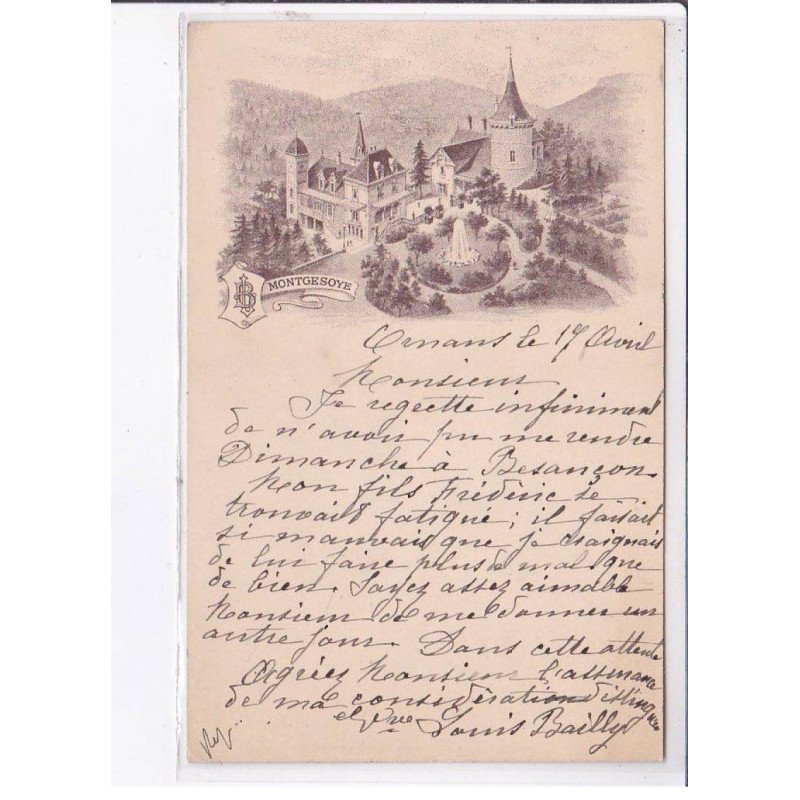 MONTGESOYE
Ornans le 17 Avril
Monsieur
Je regrette infiniment
de n'avoir pu me rendre
Dimanche à Besançon.
Mon fils Fréderic se
trouvait fatigué ; il faisait
si mauvais que je craignais
de lui faire plus de mal que
de bien. Soyez assez aimable
Monsieur de me donner un
autre jour. Dans cette attente
Agréez Monsieur l'assurance
de ma considération distinguée
Louis Bailly